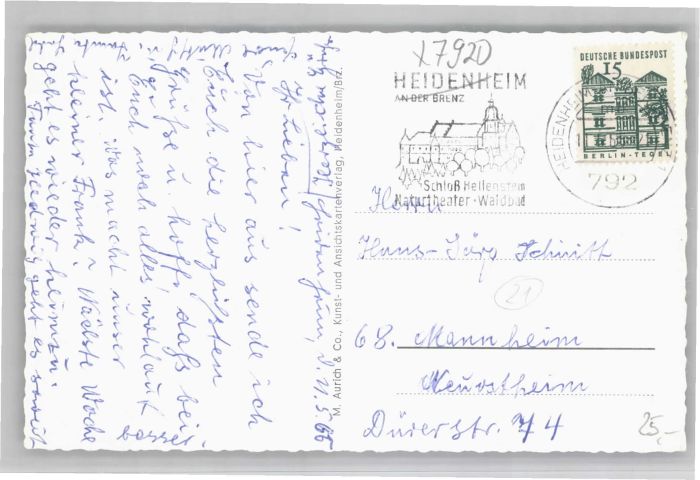 x7920
HEIDENHEIM
AN DER BRENZ
Schloß Hellenstein
Naturtheater · Waldbad
DEUTSCHE BUNDESPOST
15
BERLIN-TEGEL
HEIDENHEIM
792
Herrn
Hans-Jörg Schmitt
21
68. Mannheim
Neuostheim
Dürerstr. 44
25,-
M. Aurich & Co., Kunst- und Ansichtskartenverlag, Heidenheim/Brz.
d. 11.5.66
Ihr Lieben!
Von hier aus sende ich
Euch die herzlichsten
Grüße u. hoffe, daß bei
Euch noch alles wohlauf
ist. Was macht unser
kleiner Frank? Nächste Woche
geht es wieder heimzu.
Hedwig geht es soweit
besser.